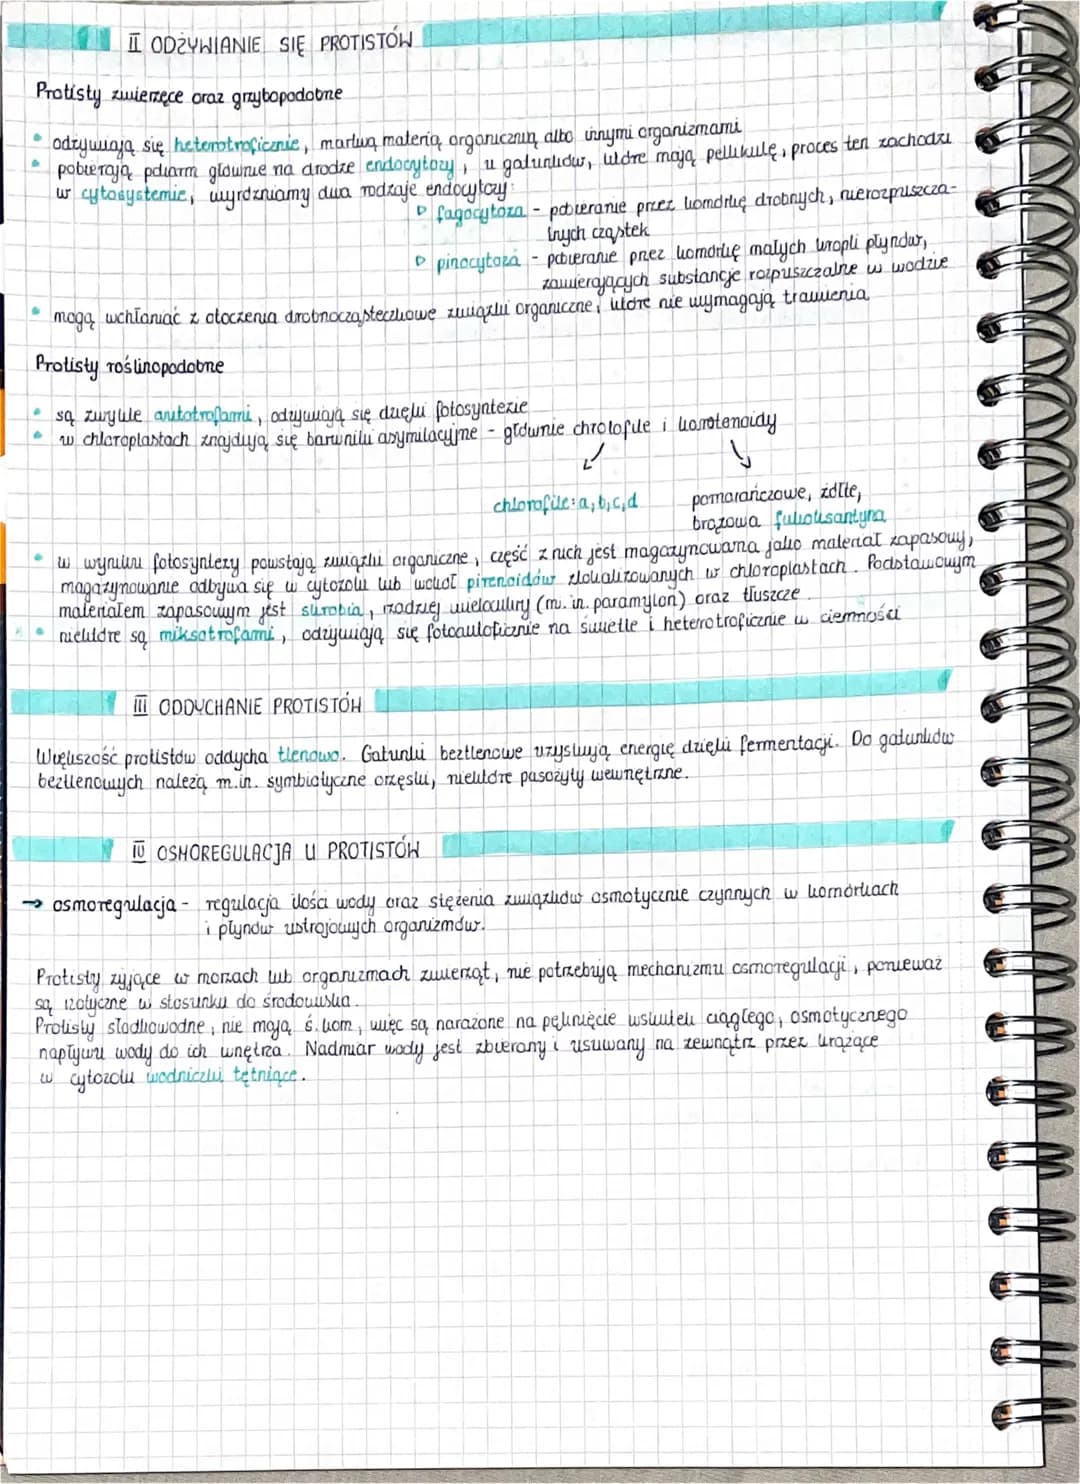 II ODŻYWIANIE SIĘ PROTISTÓW
Protisty zwierzęce oraz grzybopodobne
• odżywiają się heterotroficznie, martwą materią organiczną albo innymi organizmami
• pobierają pokarm głównie na drodze endocytozy, u gatunków, które mają pellikulę, proces ten zachodzi
w cytosystemie, wyróżniamy dwa rodzaje endocytozy:
▷ fagocytoza - pobieranie przez komórkę drobnych, nierozpuszcza-
lnych cząstek
▷ pinocytoza - pobieranie przez komórkę małych kropli płynów,
zawierających substancje rozpuszczalne w wodzie
• mogą wchłaniać z otoczenia drobnocząsteczkowe związki organiczne, które nie wymagają trawienia
Protisty roślinopodobne
• są zwykle autotrofami, odżywiają się dzięki fotosyntezie
• w chloroplastach znajdują się barwniki asymilacyjne - głównie chlorofile i karotenoidy
↙ ↘
chlorofile: a, b, c, d
pomarańczowe, żółte,
brązowa fukoksantyna
• w wyniku fotosyntezy powstają związki organiczne, część z nich jest magazynowana jako materiał zapasowy,
magazynowanie odbywa się w cytozolu lub wokół pirenoidów zlokalizowanych w chloroplastach. Podstawowym
materiałem zapasowym jest skrobia, rzadziej wielocukry (m.in. paramylon) oraz tłuszcze.
• niektóre są miksotrofami, odżywiają się fotoautoficznie na świetle i heterotroficznie w ciemności
III ODDYCHANIE PROTISTÓW
Większość protistów oddycha tlenowo. Gatunki beztlenowe uzyskują energię dzięki fermentacji. Do gatunków
beztlenowych należą m.in. symbiotyczne orzęski, niektóre pasożyty wewnętrzne.
IV OSMOREGULACJA U PROTISTÓW
→ osmoregulacja - regulacja ilości wody oraz stężenia związków osmotycznie czynnych w komórkach
i płynów ustrojowych organizmów.
Protisty żyjące w morzach lub organizmach zwierząt, nie potrzebują mechanizmu osmoregulacji, ponieważ
są izotyczne w stosunku do środowiska.
Protisty słodkowodne, nie mają ś. kom, więc są narażone na pęknięcie wskutek ciągłego, osmotycznego
napływu wody do ich wnętrza. Nadmiar wody jest zbierany i usuwany na zewnątrz przez krążące
w cytozolu wodniczki tętniące.